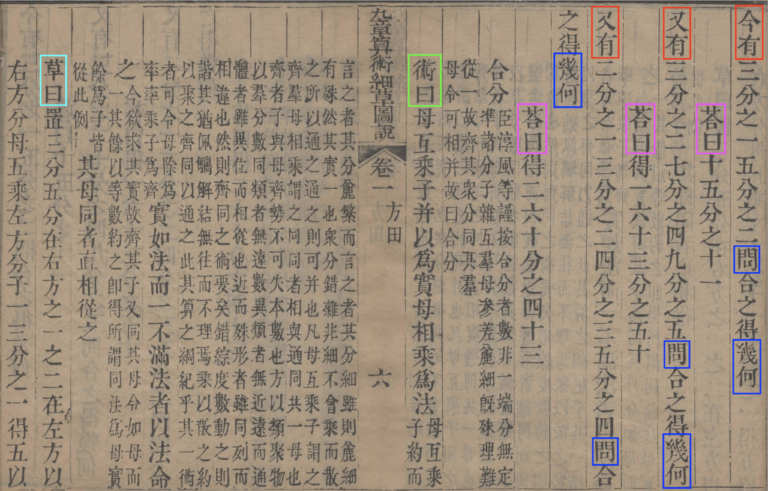 今有三分之一五分之二問合之得幾何
荅曰十五分之十一
又有三分之二七分之四九分之五問合之得幾何
荅曰得一六十三分之五十
又有二分之一三分之二四分之三五分之四問合
之得幾何
荅曰得二六十分之四十三
合分
臣淳風等謹按合分者數非一端分無定
準諸分子雜互羣母㕘差麄細旣殊理難
從一故齊其衆分同其羣
母令可相并故曰合分
術曰母互乘子并以爲實母相乘爲法
母互乘
子約而
九章算術細草圖說
卷一
方田
六
言之者其分麄繁而言之者其分細雖則麄細
有殊然其實一也衆分錯雜非細不會乘而散
之所以通之通之則可并也凡母互乘子謂之
齊羣母相乘謂之同同者相與通同共一母也
齊者子與母齊勢不可失本數也方以類聚物
以羣分數同類者無遠數異類者無近遠而通
體者雖異位而相從也近而殊形者雖同列而
相違也然則齊同之術要矣錯綜度數動之則
諧其猶佩觿解結無往而不理焉乘以散之約
以聚之齊同以通之此其算之綱紀乎其一術
者可令母除爲
率率乘子爲齊
實如法而一不滿法者以法命
之
今欲求其實故齊其子又同其母令如母而
一其餘以等數約之即得所謂同法爲母實
餘爲子皆
從此例
其母同者直相從之
草曰置三分五分在右方之一之二在左方以
右方分母五乘左方分子一三分之一得五以